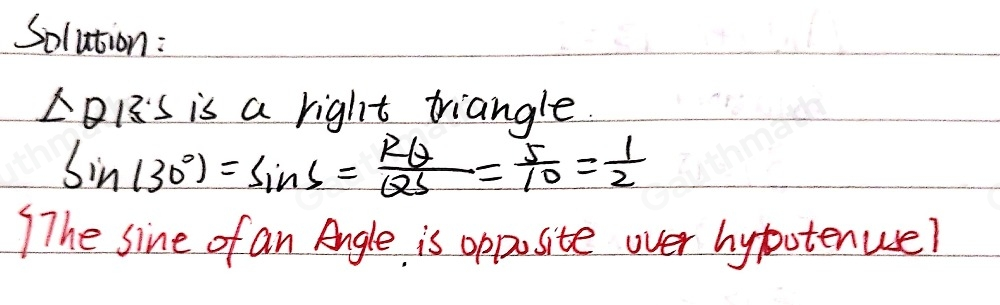 Solution:
△QRS is a right triangle.
Sin(30°) = Sin S = RQ/QS = 5/10 = 1/2
{The sine of an Angle is opposite over hypotenuse}